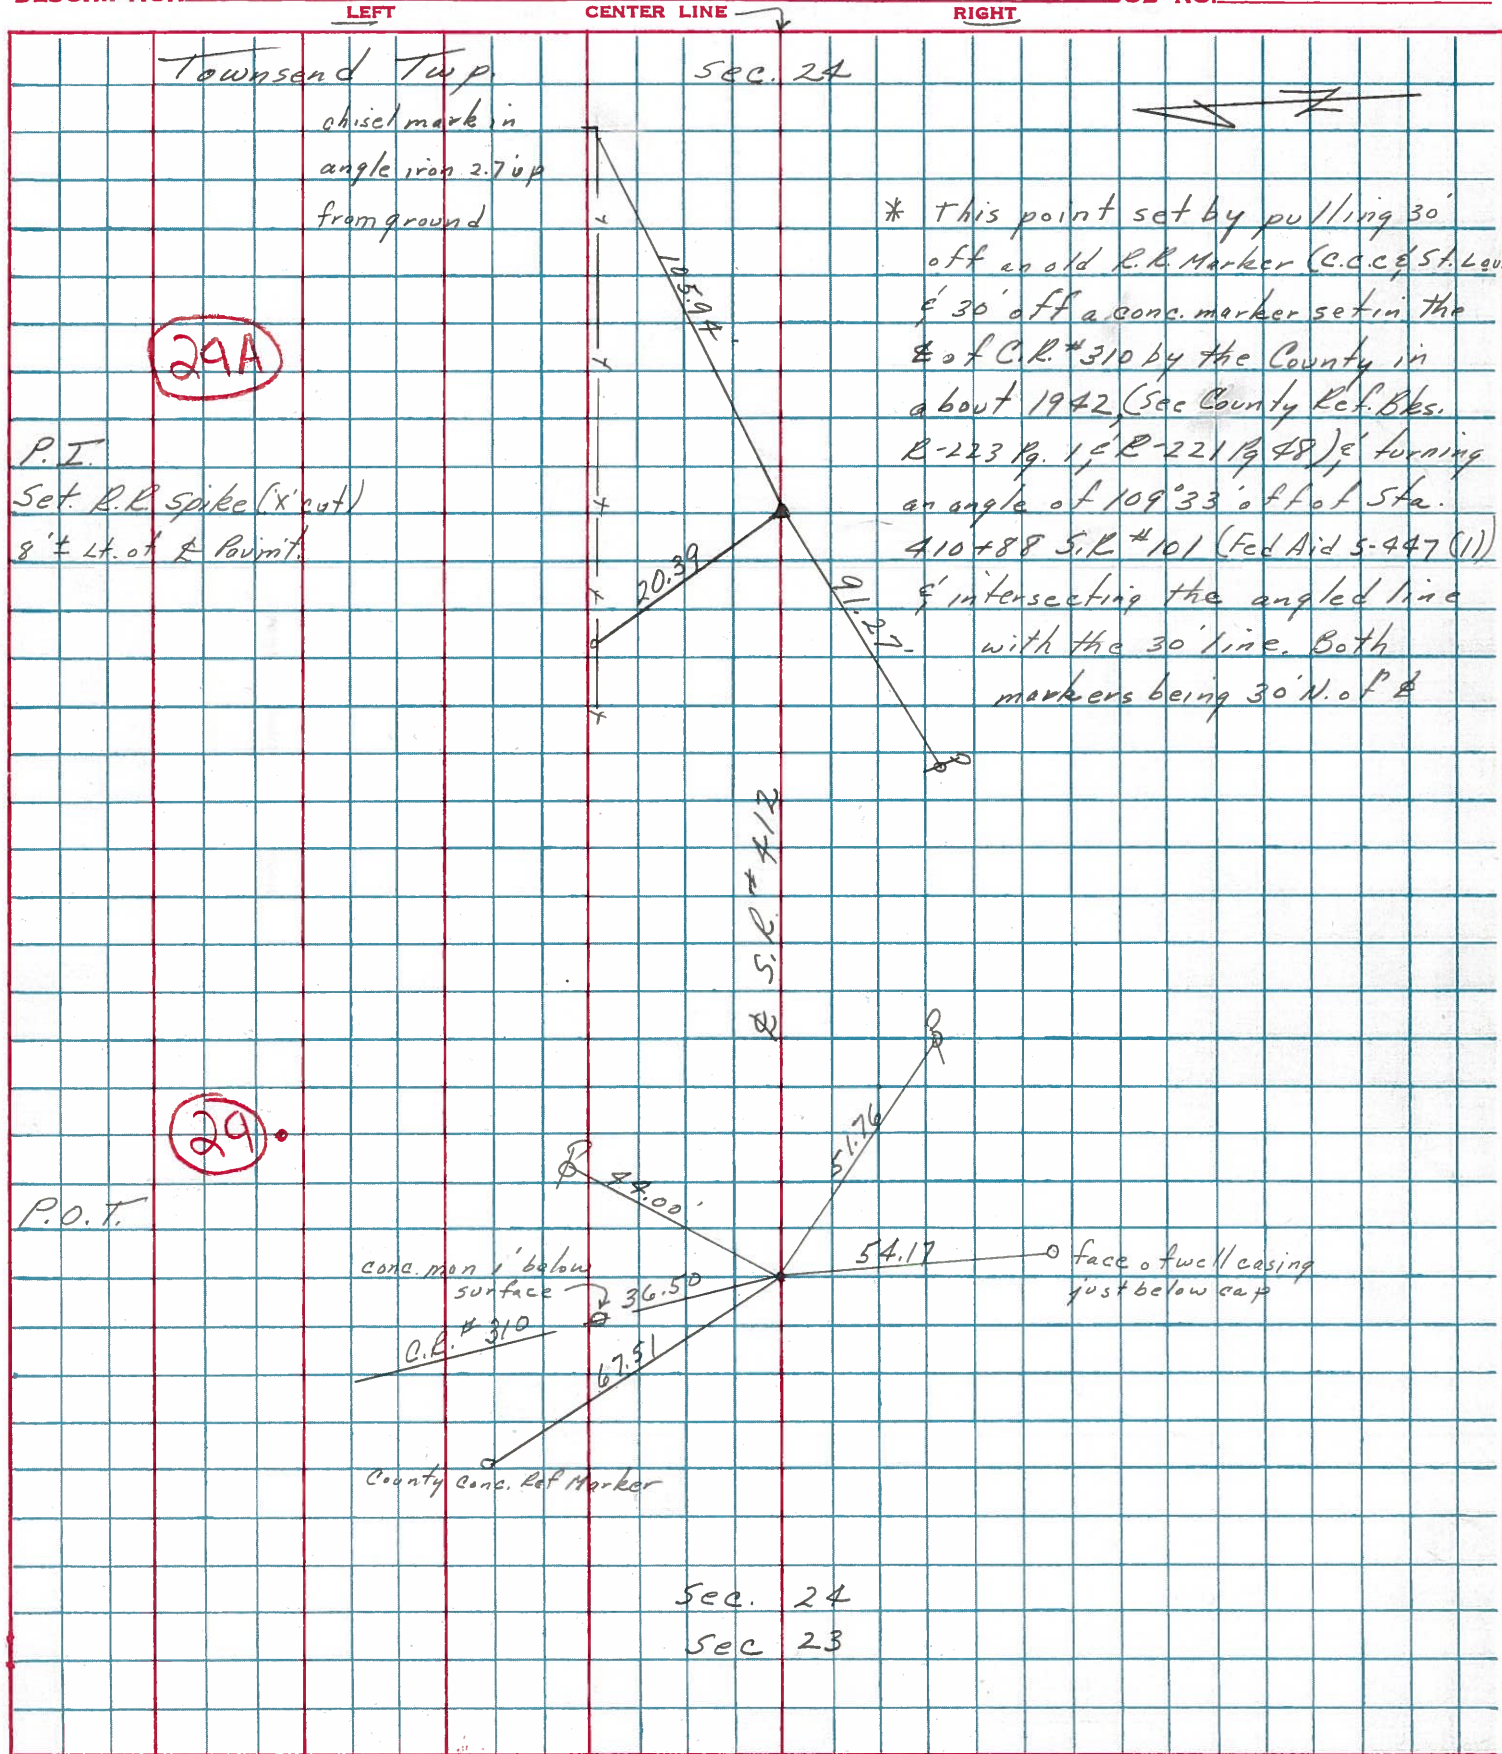 LEFT CENTER LINE RIGHT
Townsend Twp. Sec. 24
chisel mark in
angle iron 2.7' up
from ground
N
105.94'
* This point set by pulling 30'
off an old R.R. Marker (C.C.C. & St. Lou
& 30' off a conc. marker set in the
℄ of C.R. #310 by the County in
about 1942, (See County Ref. Bks.
R-223 Pg. 1 & R-221 Pg 48) & turning
an angle of 109°33' off of Sta.
410+88 S.R. #101 (Fed Aid S-447 (1))
& intersecting the angled line
with the 30' line. Both
markers being 30' N. of ℄
29A
P.I.
Set. R.R. Spike ('X' cut)
8'± Lt. of ℄ Pavmt.
20.39
91.27
℄ S.R. # 412
29
P.O.T.
44.00'
51.76
54.17
face of well casing
just below cap
conc. mon 1' below
surface
36.50
C.R. # 310
67.51
County Conc. Ref Marker
Sec. 24
Sec 23